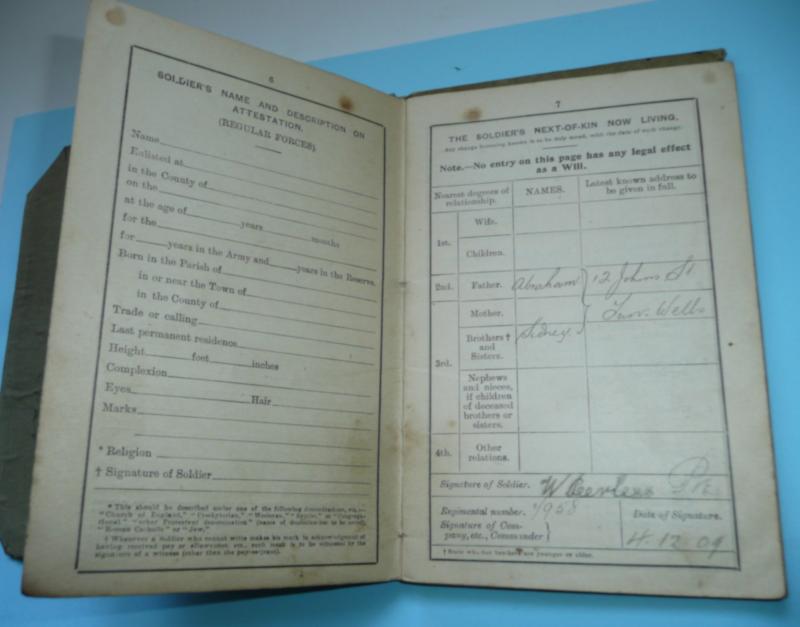 6
SOLDIER'S NAME AND DESCRIPTION ON
ATTESTATION.
(REGULAR FORCES)
Name
Enlisted at
in the County of
on the
at the age of years months
for the
for years in the Army and years in the Reserve.
Born in the Parish of
in or near the Town of
in the County of
Trade or calling
Last permanent residence
Height feet inches
Complexion
Eyes Hair
Marks
* Religion
† Signature of Soldier
* This should be described under one of the following denominations, viz.:—
"Church of England," "Presbyterian," "Wesleyan,"
"Roman Catholic" or "Jew."
† Whenever a Soldier who cannot write makes his mark in acknowledgment of
having received pay or allowances, etc., such mark is to be witnessed by the
signature of a witness (other than the pay-sergeant).
7
THE SOLDIER'S NEXT-OF-KIN NOW LIVING.
Note.—No entry on this page has any legal effect
as a Will.
Nearest degrees of
relationship.
NAMES.
Latest known address to
be given in full.
1st.
Wife.
Children.
2nd. Father. Abraham 12 Johns St
Mother. Tun. Wells
3rd.
Brothers †
and
Sisters.
Sidney
Nephews
and nieces,
if children
of deceased
brothers or
sisters.
4th.
Other
relations.
Signature of Soldier. W Peerless
Regimental number. 958
Signature of Com-
pany, etc., Commander
Date of Signature.
4.12.09
† State whether brothers are younger or older.